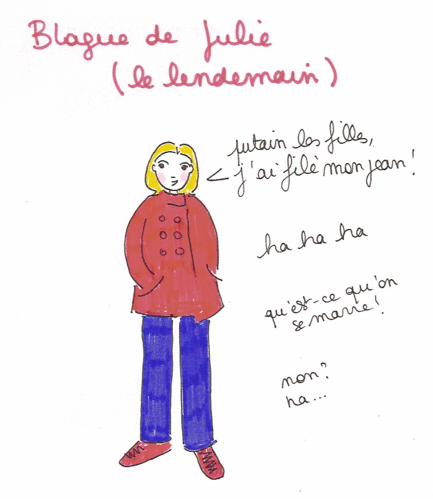 Blague de Julie
(le lendemain)
putain les filles,
j'ai filé mon jean!
ha ha ha
qu'est-ce qu'on
se marre!
non?
ha...